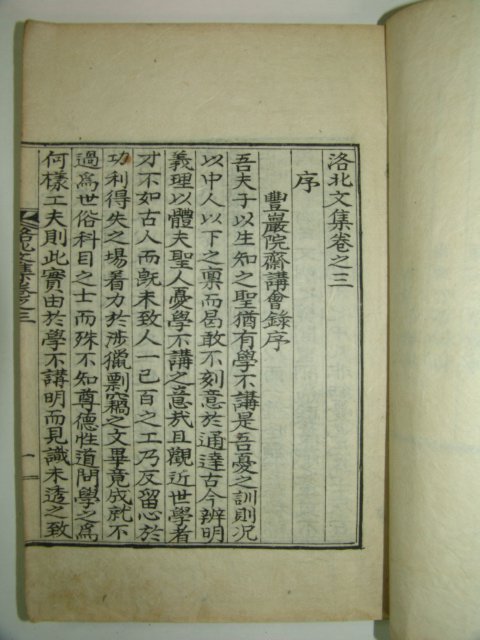 洛北文集卷之三
序
豐巖院齋講會錄序
吾夫子以生知之聖猶有學不講是吾憂之訓則況
以中人以下之稟而曷敢不刻意於通達古今辨明
義理以體夫聖人憂學不講之意哉且觀近世學者
才不如古人而旣未致人一己百之工乃反留心於
功利得失之場着力於涉獵剽竊之文畢竟成就不
過爲世俗科目之士而殊不知尊德性道問學之爲
何樣工夫則此實由於學不講明而見識未透之致
洛北文集卷之三
一